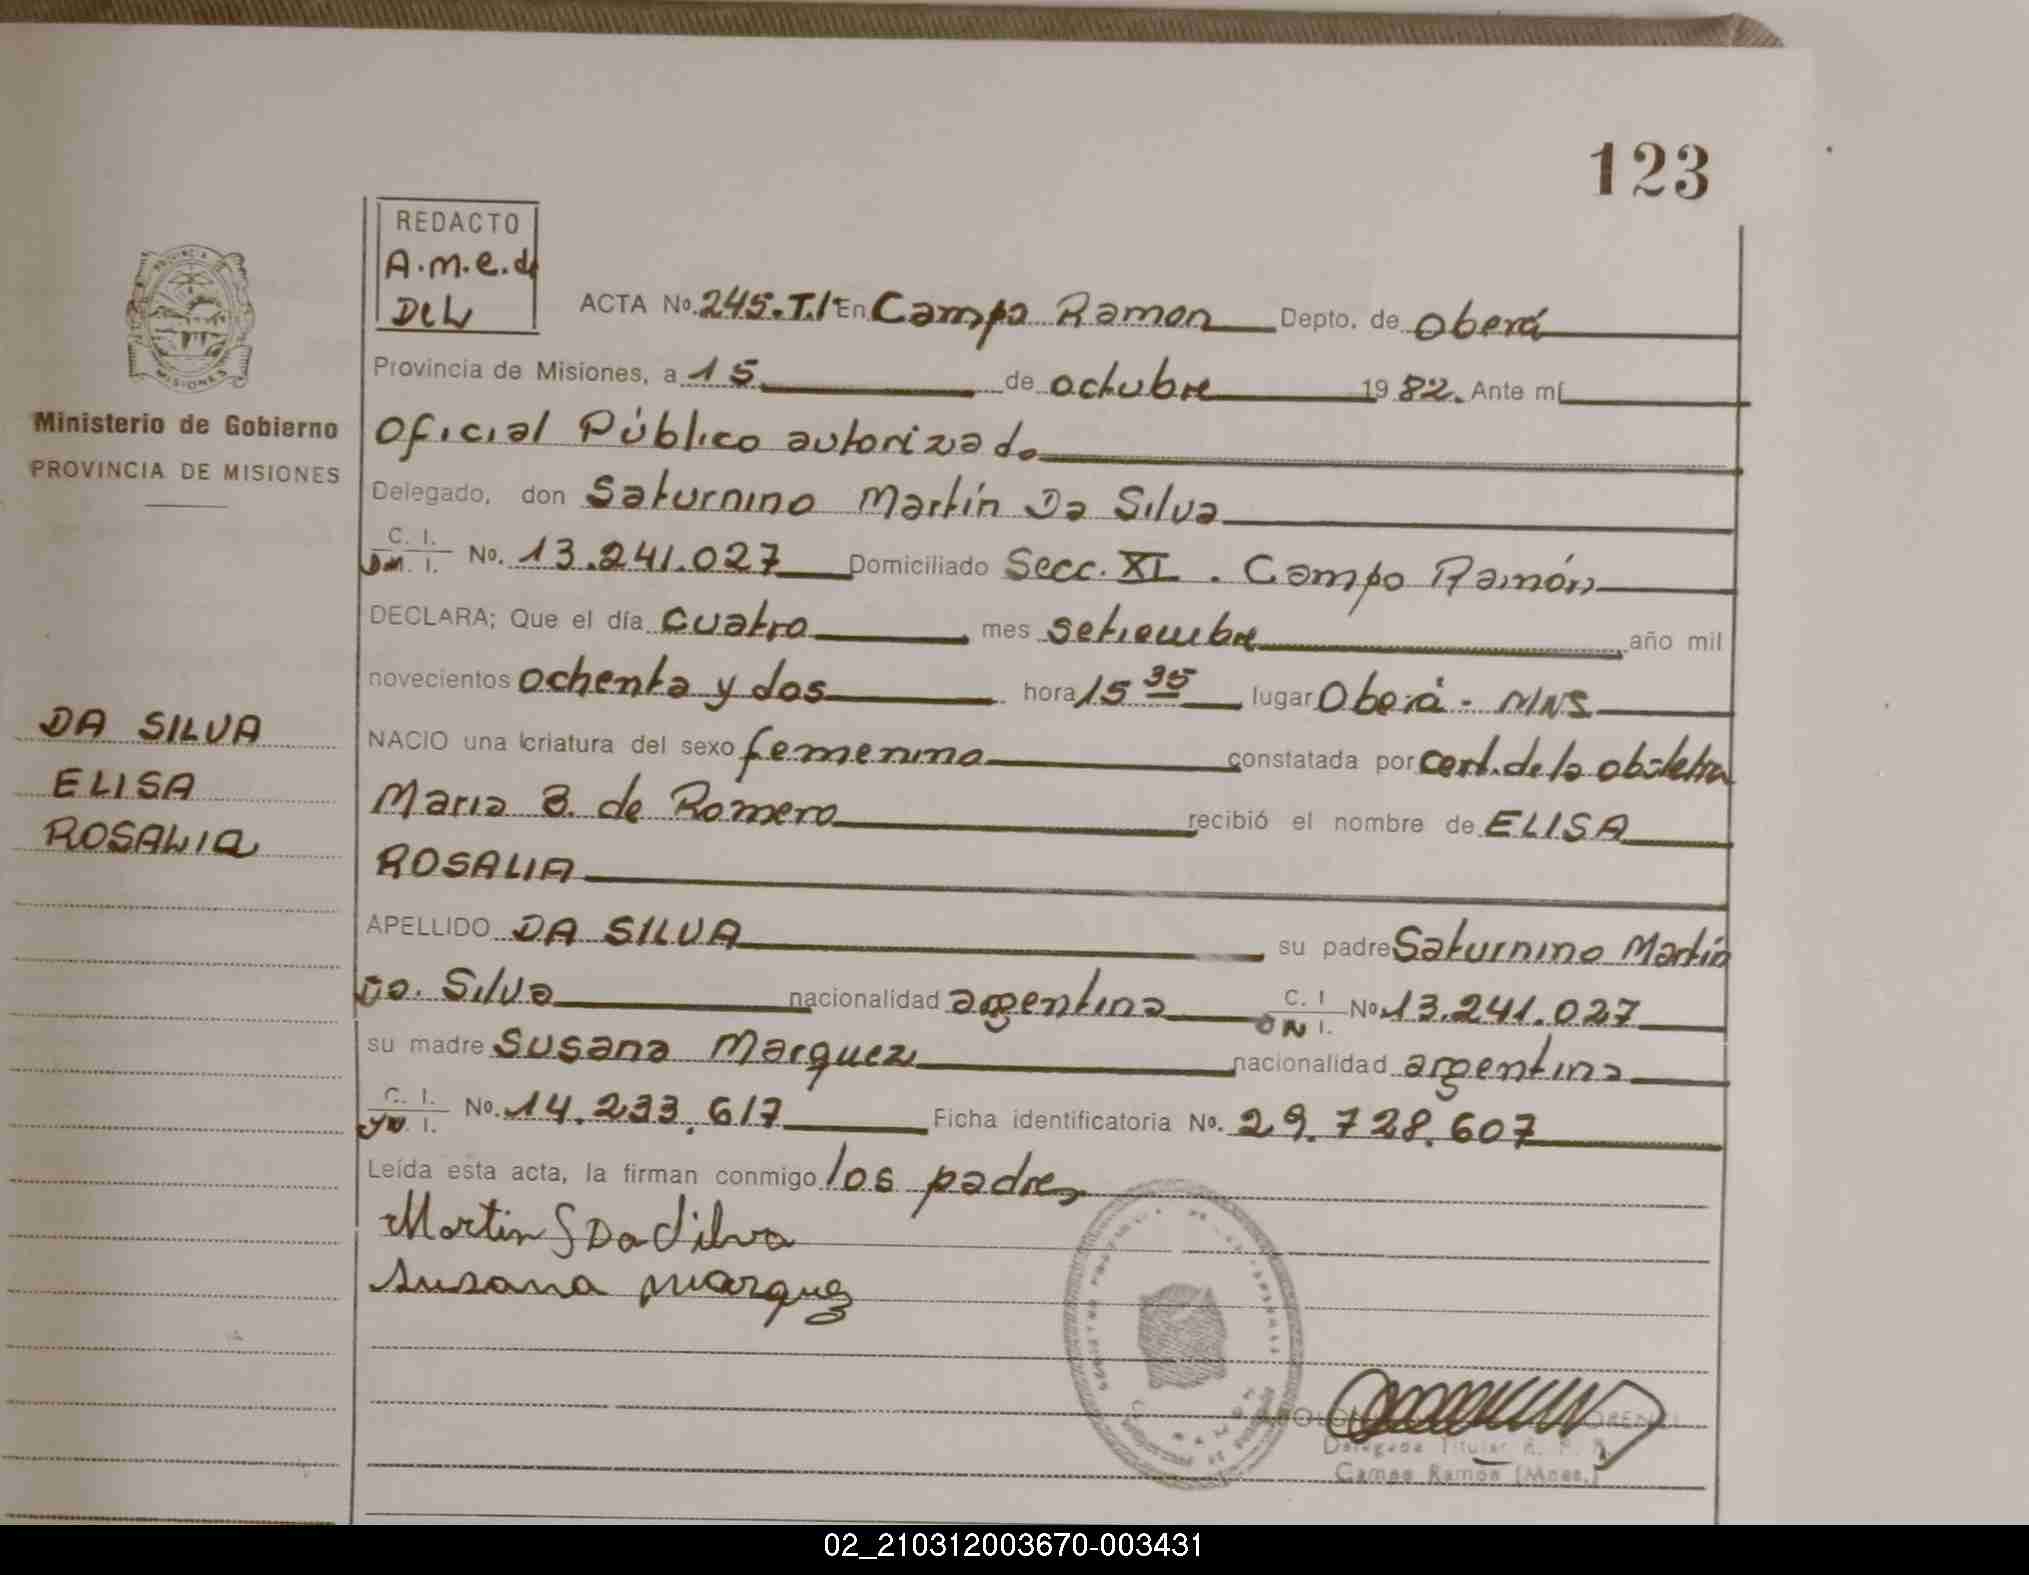 123
REDACTO
A.m.e.d
DeL
ACTA No. 245.T.I En Campo Ramon Depto. de Oberá
Provincia de Misiones, a 15 de octubre 1982. Ante mí
Oficial Público autorizado
Delegado, don Saturnino Martín Da Silva
C. I. No. 13.241.027 Domiciliado Secc. XI. Campo Ramón
DECLARA; Que el día cuatro mes setiembre año mil
novecientos ochenta y dos hora 15 35 lugar Oberá - MNS
NACIO una criatura del sexo femenino constatada por cert. de la obstetra
Maria B. de Romero recibió el nombre de ELISA
ROSALIA
APELLIDO DA SILVA su padre Saturnino Martín
Da. Silva nacionalidad argentina C. I No. 13.241.027
D N I.
su madre Susana Marquez nacionalidad argentina
C. I. No. 14.233.617 Ficha identificatoria No. 29.728.607
Leída esta acta, la firman conmigo los padres
Martin S Da Silva
Susana Marquez
Delegada Titular R. P.
Campo Ramón (Mnes.)
PROVINCIA DE
MISIONES
Ministerio de Gobierno
PROVINCIA DE MISIONES
DA SILVA
ELISA
ROSALIA
02_210312003670-003431